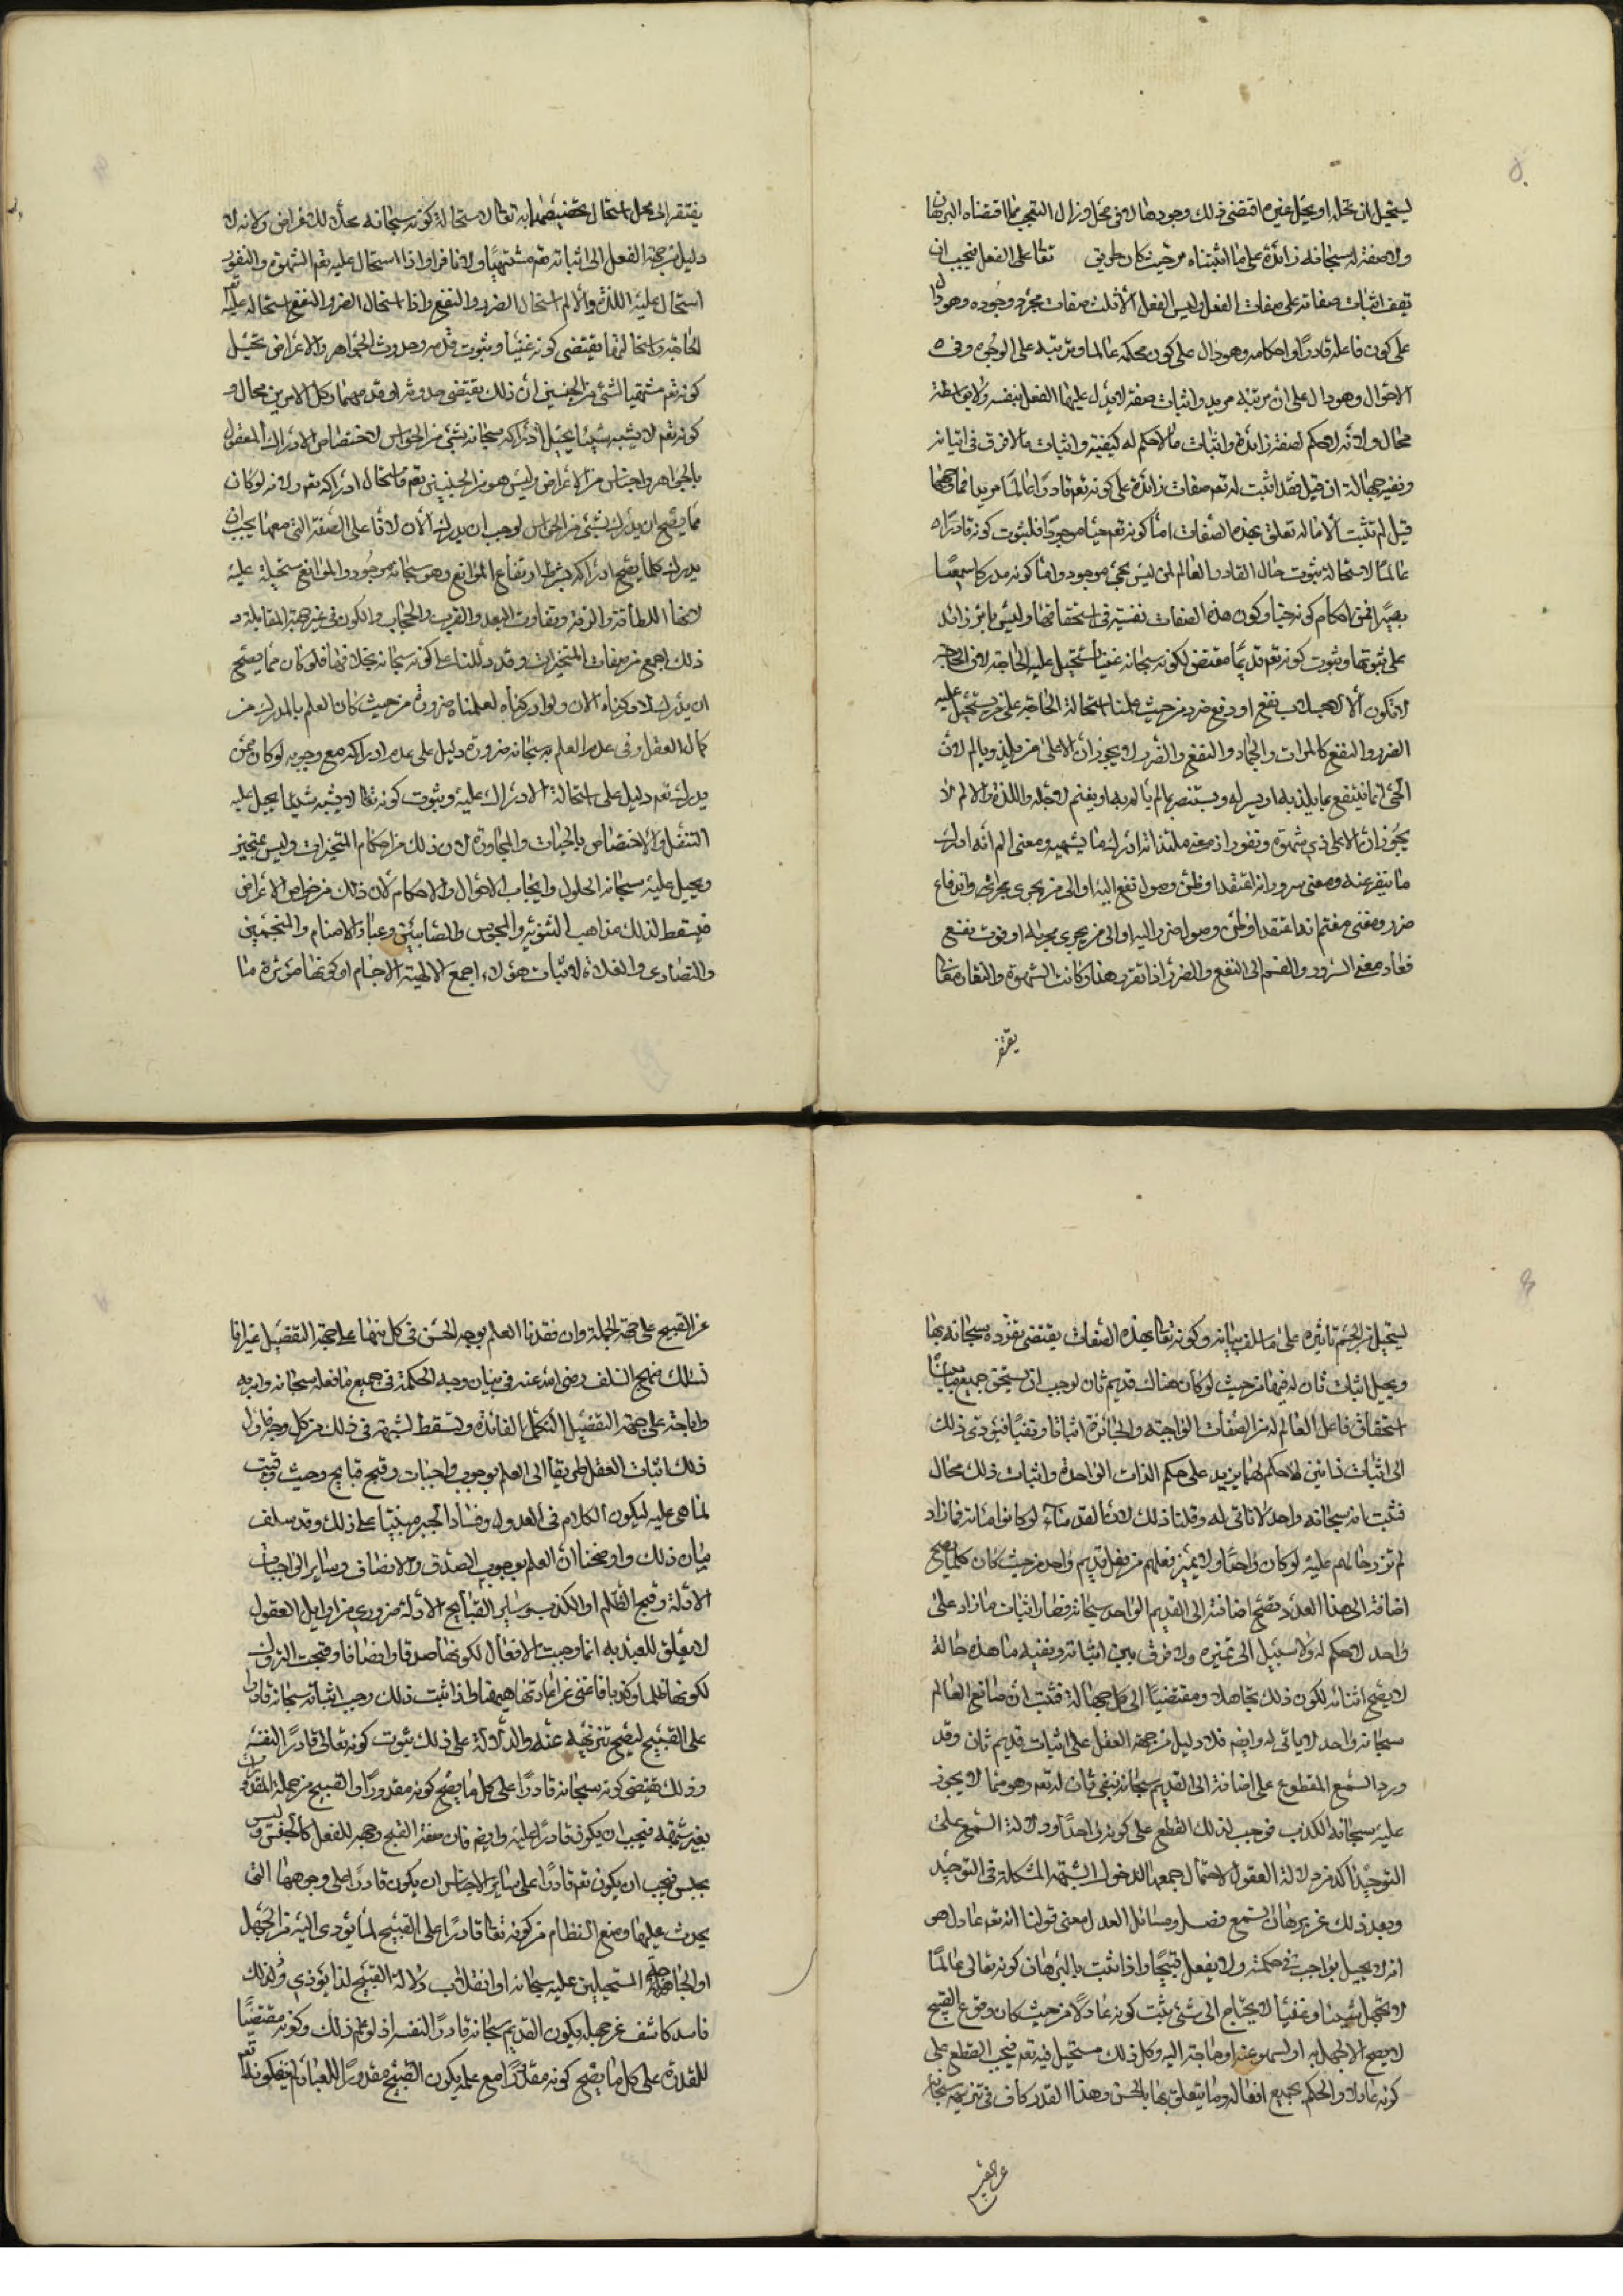 ليستحيل ان يحله او يحل غيره اقتضى ذلك وجودها لا في محل وزال التعجب مما اقتضاه البرهان
ولا صفة له سبحانه زائدة على ما اثبتناه من حيث كان طريق تعا على الفعل فيجب ان
تقف اثبات صفاته على صفات الفعل وليس الفعل الا ثلث صفات مجرد وجوده وهو دال
على كون فاعله قادرا واحكامه وهو دال على كون محكمه عالما وترتبه على الوجوه وفي
الاحوال وهو دال على ان مرتبه مريد واثبات صفة لا يدل عليها الفعل بنفسه ولا بواسطة
محال ولانه لا حكم لصفة زائدة واثبات ما لا حكم له كيفية واثبات ما لا فرق في اثباته
ونفيه جهالة ان قيل فقد اثبت له تعم صفات زائدة على كونه تعم قادرا عالما مريدا فما وجهها
قيل لم تثبت الا ما له تعلق بهذه الصفات اما كونه تعم حيا موجودا فلثبوت كونه قادرا
عالما لاستحالة ثبوت حال القادر العالم لمن ليس بحي موجود واما كونه مدركا سميعا
بصيرا فمن احكام كونه حيا وكون هذه الصفات نفسية في استحقاقها وليس بامر زائد
على ثبوتها وثبوت كونه تعم قديما مقتض لكونه سبحانه غنيا تستحيل عليه الحاجة لان الحاجة
لا تكون الا لاجتلاب نفع او دفع ضرر من حيث علمنا استحالة الحاجة على من يستحيل عليه
الضرر والنفع كالموات والجماد والنفع والضرر لا يجوز ان الا على من يلتذ ويالم لان
الحي انما ينتفع بما يلتذ به او يسر له ويستضر بما يالم به او يغتم لاجله واللذة والالم لا
يجوزان الا على ذي شهوة ونفور اذ معنى ملتذ انه ادرك ما يشتهيه ومعنى الم انه ادرك
ما ينفر عنه ومعنى سرور انه اعتقد او ظن وصول نفع اليه او الى من يجري مجراه واندفاع
ضرر ومعنى مغتم انه اعتقد او ظن وصول ضرر اليه او الى من يجري مجراه او فوت نفع
فعاد معنى السرور والغم الى النفع والضرر اذا تقرر هذا وكانت الشهوة والنفار معا
يفتقر
يفتقر الى محل استحال تخصيصهما به تعالى لاستحالة كونه سبحانه محلا للاعراض ولانه لا
دليل من جهة الفعل الى اثباته تعم مشتهيا ولا نافرا واذا استحال عليه تعم الشهوة والنفور
استحال عليه اللذة والالم استحال الضرر والنفع واذا استحال الضرر والنفع استحالة عليه
الحاجة واستحالتها يقتضي كونه غنيا وثبوت قدمه وحدوث الجواهر والاعراض يحيل
كونه تعم مشبها لشيء من الجنسين لان ذلك يقتضي حدوثه او قدمهما وكل الامرين محال و
كونه تعم لا يشبه شيئا يحيل ادراكه سبحانه بشيء من الحواس لاختصاص الادراك المعقول
بالجواهر واجناس من الاعراض وليس هو من الجنسين تعم فاستحال ادراكه تعم ولانه لو كان
مما يصح ان يدرك بشيء من الحواس لوجب ان يدركه الان لانا على الصفة التي معها يجب ان
يدرك كلما يصح ادراكه بشرط ارتفاع الموانع وهو سبحانه موجود والموانع مستحيلة عليه
لانها اللطافة والرقة وتفاوت البعد والقرب والحجاب والكون في غير جهة المقابلة و
ذلك اجمع من صفات المتحيزات وقد دللنا على كونه سبحانه بخلافها فلو كان مما يصح
ان يدرك لادركناه الان ولو ادركناه لعلمناه ضرورة من حيث كان العلم بالمدرك من
كمال العقل وفي عدم العلم به سبحانه ضرورة دليل على عدم ادراكه مع وجوبه لو كان ممن
يدرك تعم دليل على استحالة الادراك عليه وثبوت كونه تعالى لا يشبه شيئا يحيل عليه
التنقل والاختصاص بالجهات والمجاورة لان ذلك من احكام المتحيزات وليس بمتحيز
ويحيل عليه سبحانه الحلول وايجاب الاحوال والاحكام لان ذلك من خواص الاعراض
فيسقط لذلك مذاهب الثنوية والمجوس والصابئين وعباد الاصنام والمنجمين
والنصارى والغلاة لاثبات هؤلاء اجمع الالهية الاجسام او كونها مؤثرة ما
ليستحيل من الجسم تاثيره على ما سلف بيانه وكونه تعالى بهذه الصفات يقتضي تفرده سبحانه بها
ويحيل اثبات ثان له فيها من حيث لو كان هناك قديم ثان لوجب ان يستحق جميع ما بينا
استحقاق فاعل العالم له من الصفات الواجبة والجائزة اثباتا ونفيا فيؤدي ذلك
الى اثبات ذاتين لا حكم لهما يزيد على حكم الذات الواحدة واثبات ذلك محال
فثبت انه سبحانه واحد لا ثاني له وقلنا ذلك لان القدماء لو كانوا مائة فما زاد
لم تزد حالهم عليه لو كان واحدا ولا يتميز فعلهم من فعل قديم واحد من حيث كان كلما يصح
اضافته الى هذا العدد تصح اضافته الى القديم الواحد سبحانه فصار اثبات ما زاد على
واحد لا حكم له ولا سبيل الى تميزه ولا فرق بين اثباته ونفيه ما هذه حاله
لا يصح اثباته لكون ذلك تجاهلا ومقتضيا الى كل جهالة فثبت ان صانع العالم
سبحانه واحد لا ثاني له وايضم فلا دليل من جهة العقل على اثبات قديم ثان وقد
ورد السمع المقطوع على اضافته الى القديم سبحانه بنفي ثان له تعم وهو مما لا يجوز
عليه سبحانه الكذب فوجب لذلك القطع على كونه واحدا ودلالة السمع على
التوحيد اكد من دلالة العقول لاحتمال جمعها لدخول الشبهة المشكلة في التوحيد
وبعد ذلك عن برهان السمع فصل ومسائل العدل معنى قولنا انه تعم عادل هو
انه لا يخل بواجب في حكمته ولا يفعل قبيحا واذا ثبت بالبرهان كونه تعالى عالما
لا يجهل شيئا وغنيا لا يحتاج الى شيء يثبت كونه عادلا من حيث كان وقوع القبيح
لا يصح الا لجهل به او لسهو عنه او حاجة اليه وكل ذلك مستحيل فيه تعم فيجب القطع على
كونه عادلا والحكم بجميع افعاله وما يتعلق بها بالحسن وهذا القدر كاف في تنزيهه سبحانه
عن القبيح
عن القبيح على جهة الجملة وان فقدنا العلم بوجه الحسن في كل منها على جهة التفصيل غير انا
نسلك نهج السلف رضي الله عنهم في بيان وجه الحكمة في جميع ما فعله سبحانه وامر به
واباحه على جهة التفصيل لتكمل الفائدة وتسقط لشبهة في ذلك من كل وجه واول
ذلك اثبات العقل طريقا الى العلم بوجوب واجبات وقبح قبايح وحيث وقبت
لما هي عليه ليكون الكلام في العدل وفساد الجبر مبنيا على ذلك وقد سلف
بيان ذلك واوضحنا ان العلم بوجوب الصدق والانصاف وساير الواجبات
الاولة وقبح الظلم او الكذب وساير القبايح الاولة ضروري من اوايل العقول
لا تعلق للعبد به انما وجبت الافعال لكونها صدقا وانصافا وقبحت التروك
لكونها ظلما وكذبا فاغنى عن اعادتها هيهنا واذا ثبت ذلك وجب اثباته سبحانه قادرا
على القبيح ليصح تنزيهه عنه والدلالة على ذلك ثبوت كونه تعالى قادرا لنفسه
وذلك يقتضي كونه سبحانه قادرا على كل ما يصح كونه مقدورا والقبيح من جملة المقدورات
بغير شبهة فيجب ان يكون قادرا عليه وايضم فان صفة القبح وجه للفعل كالحسن وليس
بجنس فيجب ان يكون تعم قادرا على ساير الاجناس ان يكون قادرا على وجوهها التي
يحدث عليها ومنع النظام من كونه تعالى قادرا على القبيح لما يؤدي اليه من الجهل
او الحاجة المستحيلين عليه سبحانه او انقلاب دلالة القبيح لذا يؤدي ولذلك
فاسد كاشف عن جهله بكون القديم سبحانه قادرا لنفسه اذ لو علم ذلك وكونه مقتضيا
للقدرة على كل ما يصح كونه مقدورا مع علمه بكون القبيح مقدورا للعباد لم يخف كونه تعم